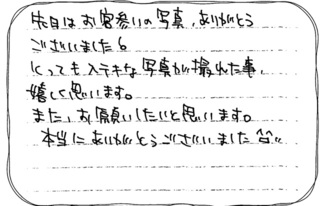 本日はお宮参いの写真、ありがとう
ございました。
とってもステキな写真が撮れた事、
嬉しく思います。
また、お願いしたいと思います。
本当にありがとうございました^^